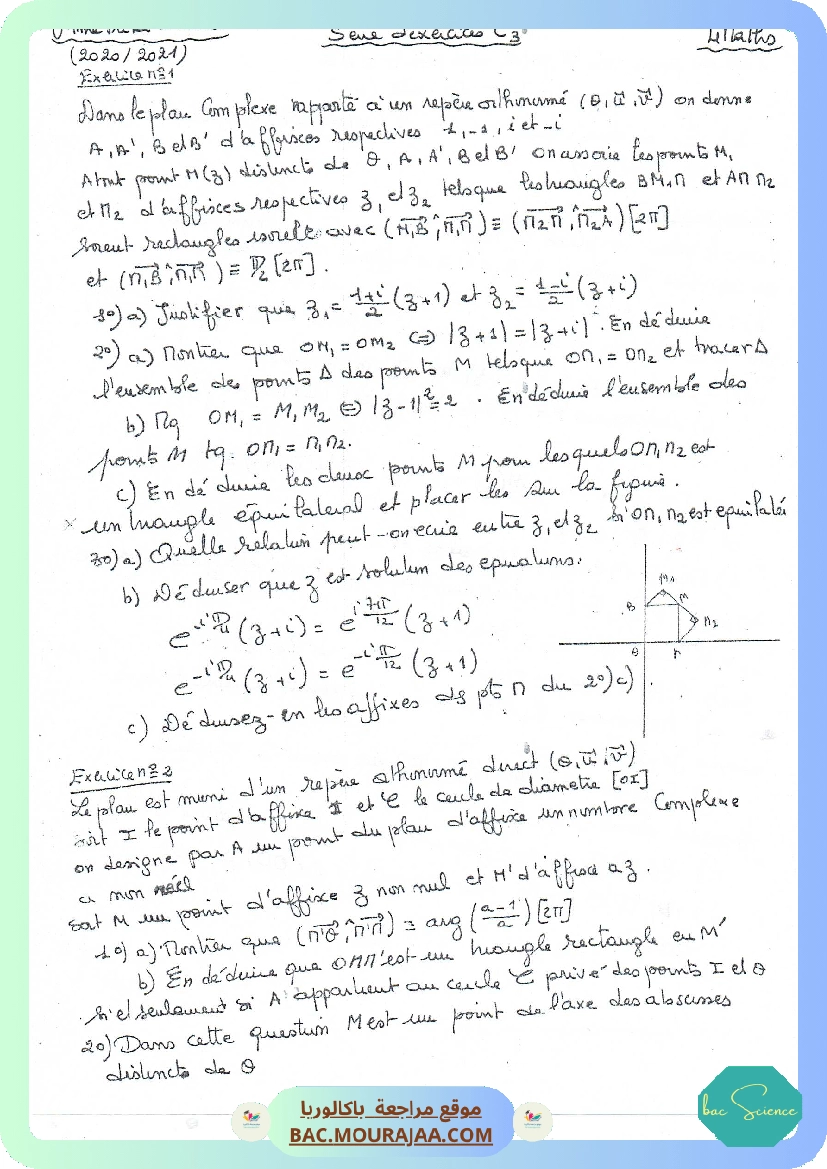 Série d'exercices C3
4 Maths
(2020/2021)
Exercice n=1
Dans le plan Complexe rapporté à un repère orthonormé (O, u⃗, v⃗) on donne
A, A', B et B' d'affixes respectives 1, -1, i et -i
A tout point M(z) distincts de O, A, A', B et B' on associe les points M1
et M2 d'affixes respectives z1 et z2 tels que les triangles BM1M et AMM2
soient rectangles isocèle avec (M1B, M1M) ≡ (M2M, M2A) [2π]
et (M1B, M1M) ≡ π/2 [2π].
1°) a) Justifier que z1 = (1+i)/2 (z+1) et z2 = (1-i)/2 (z+i)
2°) a) Montrer que OM1 = OM2 ⇔ |z+1| = |z+i|. En déduire
l'ensemble des points Δ des points M tels que OM1 = OM2 et tracer Δ
b) Mq OM1 = M1M2 ⇔ |z-1|² = 2. En déduire l'ensemble des
points M tq. OM1 = M1M2.
c) En déduire les deux points M pour lesquels OM1M2 est
un triangle équilatéral et placer les sur la figure.
3°) a) Quelle relation peut-on ecrire entre z1 et z2 si OM1M2 est equilatéral
b) Déduiser que z est solution des equations:
e^(-iπ/4) (z+i) = e^(i7π/12) (z+1)
e^(-iπ/4) (z+i) = e^(-iπ/12) (z+1)
c) Déduisez-en les affixes ds pts M du 2°) c)
M1
B
M
M2
O
A
Exercice n=2
Le plan est muni d'un repère othonormé direct (O, u⃗, v⃗)
soit I le point d'affixe 1 et 𝒞 le cercle de diametre [OI]
on designe par A un point du plan d'affixe un nombre Complexe
a non réel
soit M un point d'affixe z non nul et M' d'affixe a z.
1°) a) Montrer que (M'O, M'M) ≡ arg ((a-1)/a) [2π]
b) En déduire que OMM' est un triangle rectangle en M'
si et seulement si A appartient au cercle 𝒞 privé des points I et O
2°) Dans cette question M est un point de l'axe des abscisses
distincts de O
موقع مراجعة باكالوريا
BAC.MOURAJAA.COM
bac Science